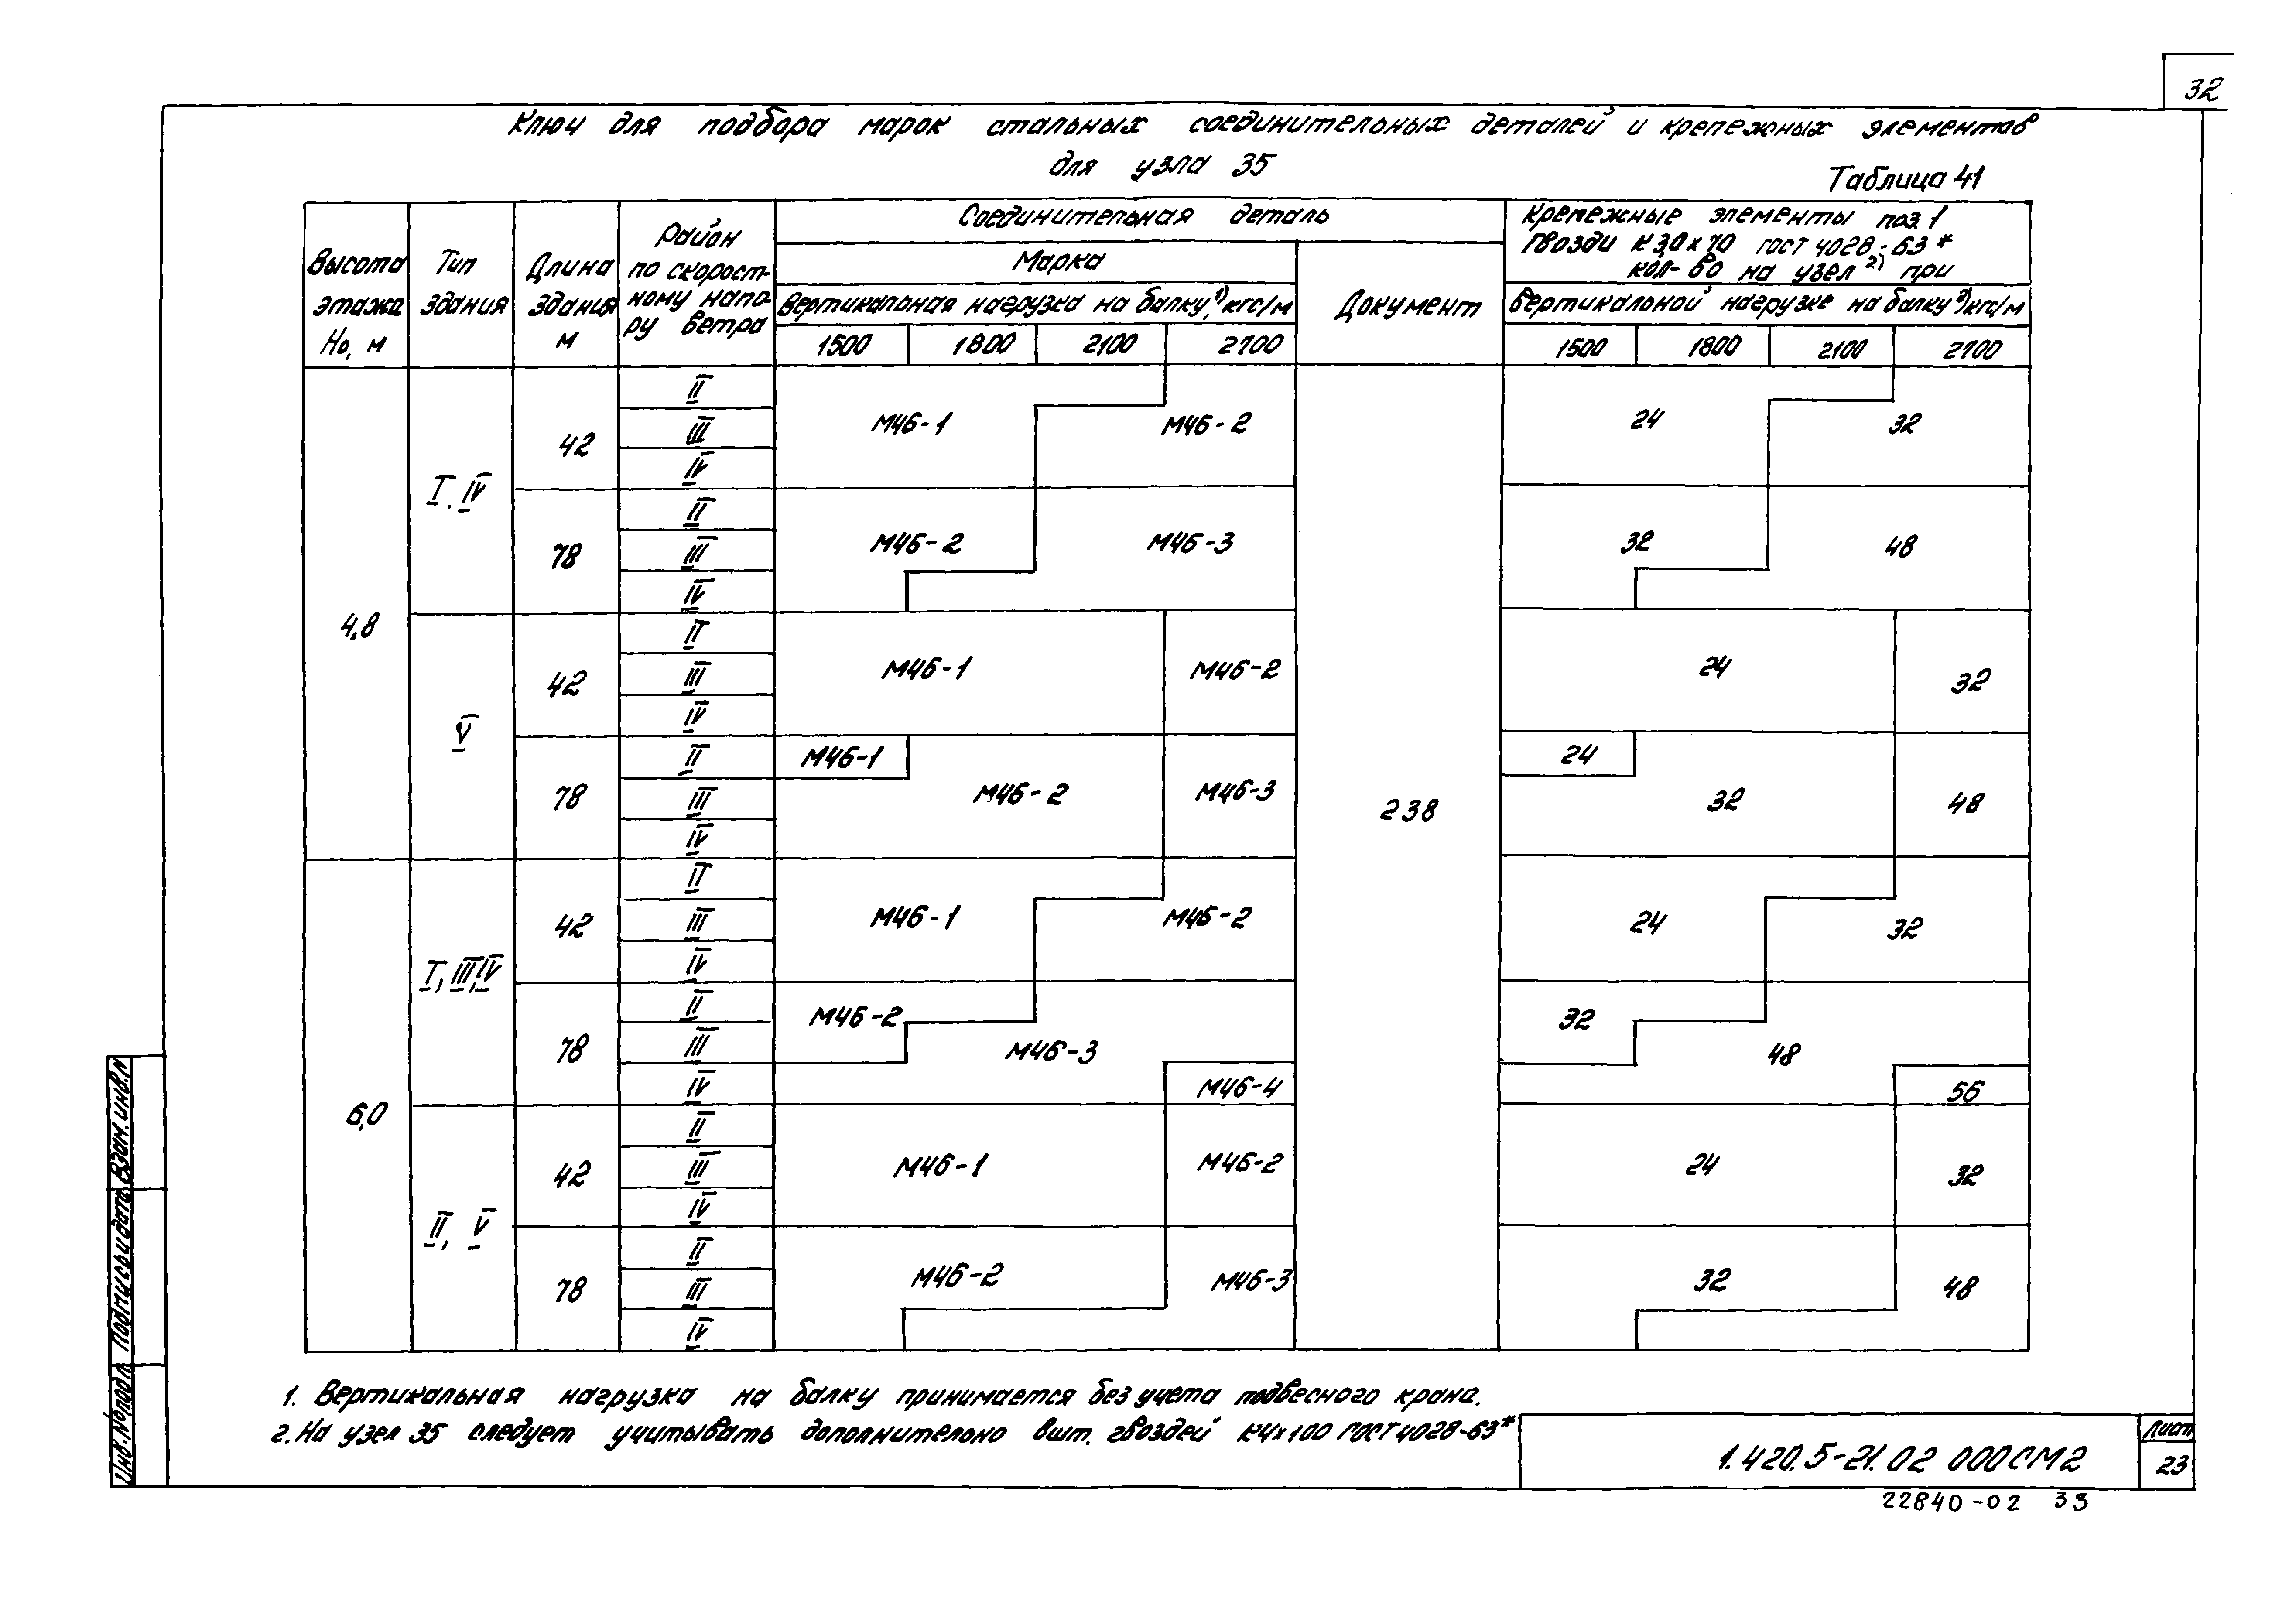 32
Ключ для подбора марок стальных соединительных деталей и крепежных элементов
для узла 35
Таблица 41
Высота этажа Но, м
Тип здания
Длина здания м
Район по скорост-ному напо-ру ветра
Соединительная деталь
Марка
Вертикальная нагрузка на балку,¹⁾ кгс/м
1500 1800 2100 2700
Документ
Крепежные элементы поз. 1
Гвозди К 3,0×70 ГОСТ 4028-63*
кол-во на узел ²⁾ при
вертикальной нагрузке на балку ¹⁾ кгс/м
1500 1800 2100 2700
4,8
I, IV
42
II
III
IV
М46-1 М46-2
24 32
78
II
III
IV
М46-2 М46-3
32 48
V
42
II
III
IV
М46-1 М46-2
24 32
78
II
III
IV
М46-1
М46-2 М46-3
238
24
32 48
6,0
I, III, IV
42
II
III
IV
М46-1 М46-2
24 32
78
II
III
IV
М46-2
М46-3
М46-4
32
48
56
II, V
42
II
III
IV
М46-1 М46-2
24 32
78
II
III
IV
М46-2 М46-3
32 48
1. Вертикальная нагрузка на балку принимается без учета подвесного крана.
2. На узел 35 следует учитывать дополнительно 8шт. гвоздей К4×100 ГОСТ 4028-63*
1.420.5-21.02 000СМ2
Лист
23
22840-02 33
Инв.№подл. Подпись и дата Взам.инв.№